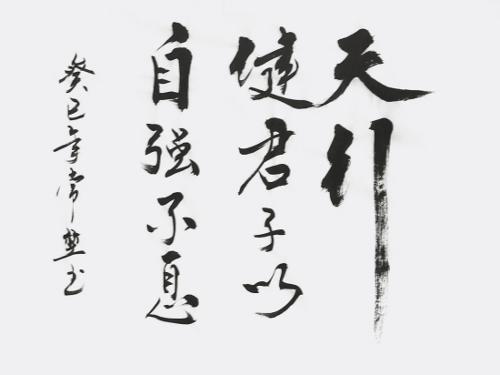 天行
健君子以
自强不息
癸巳年常书